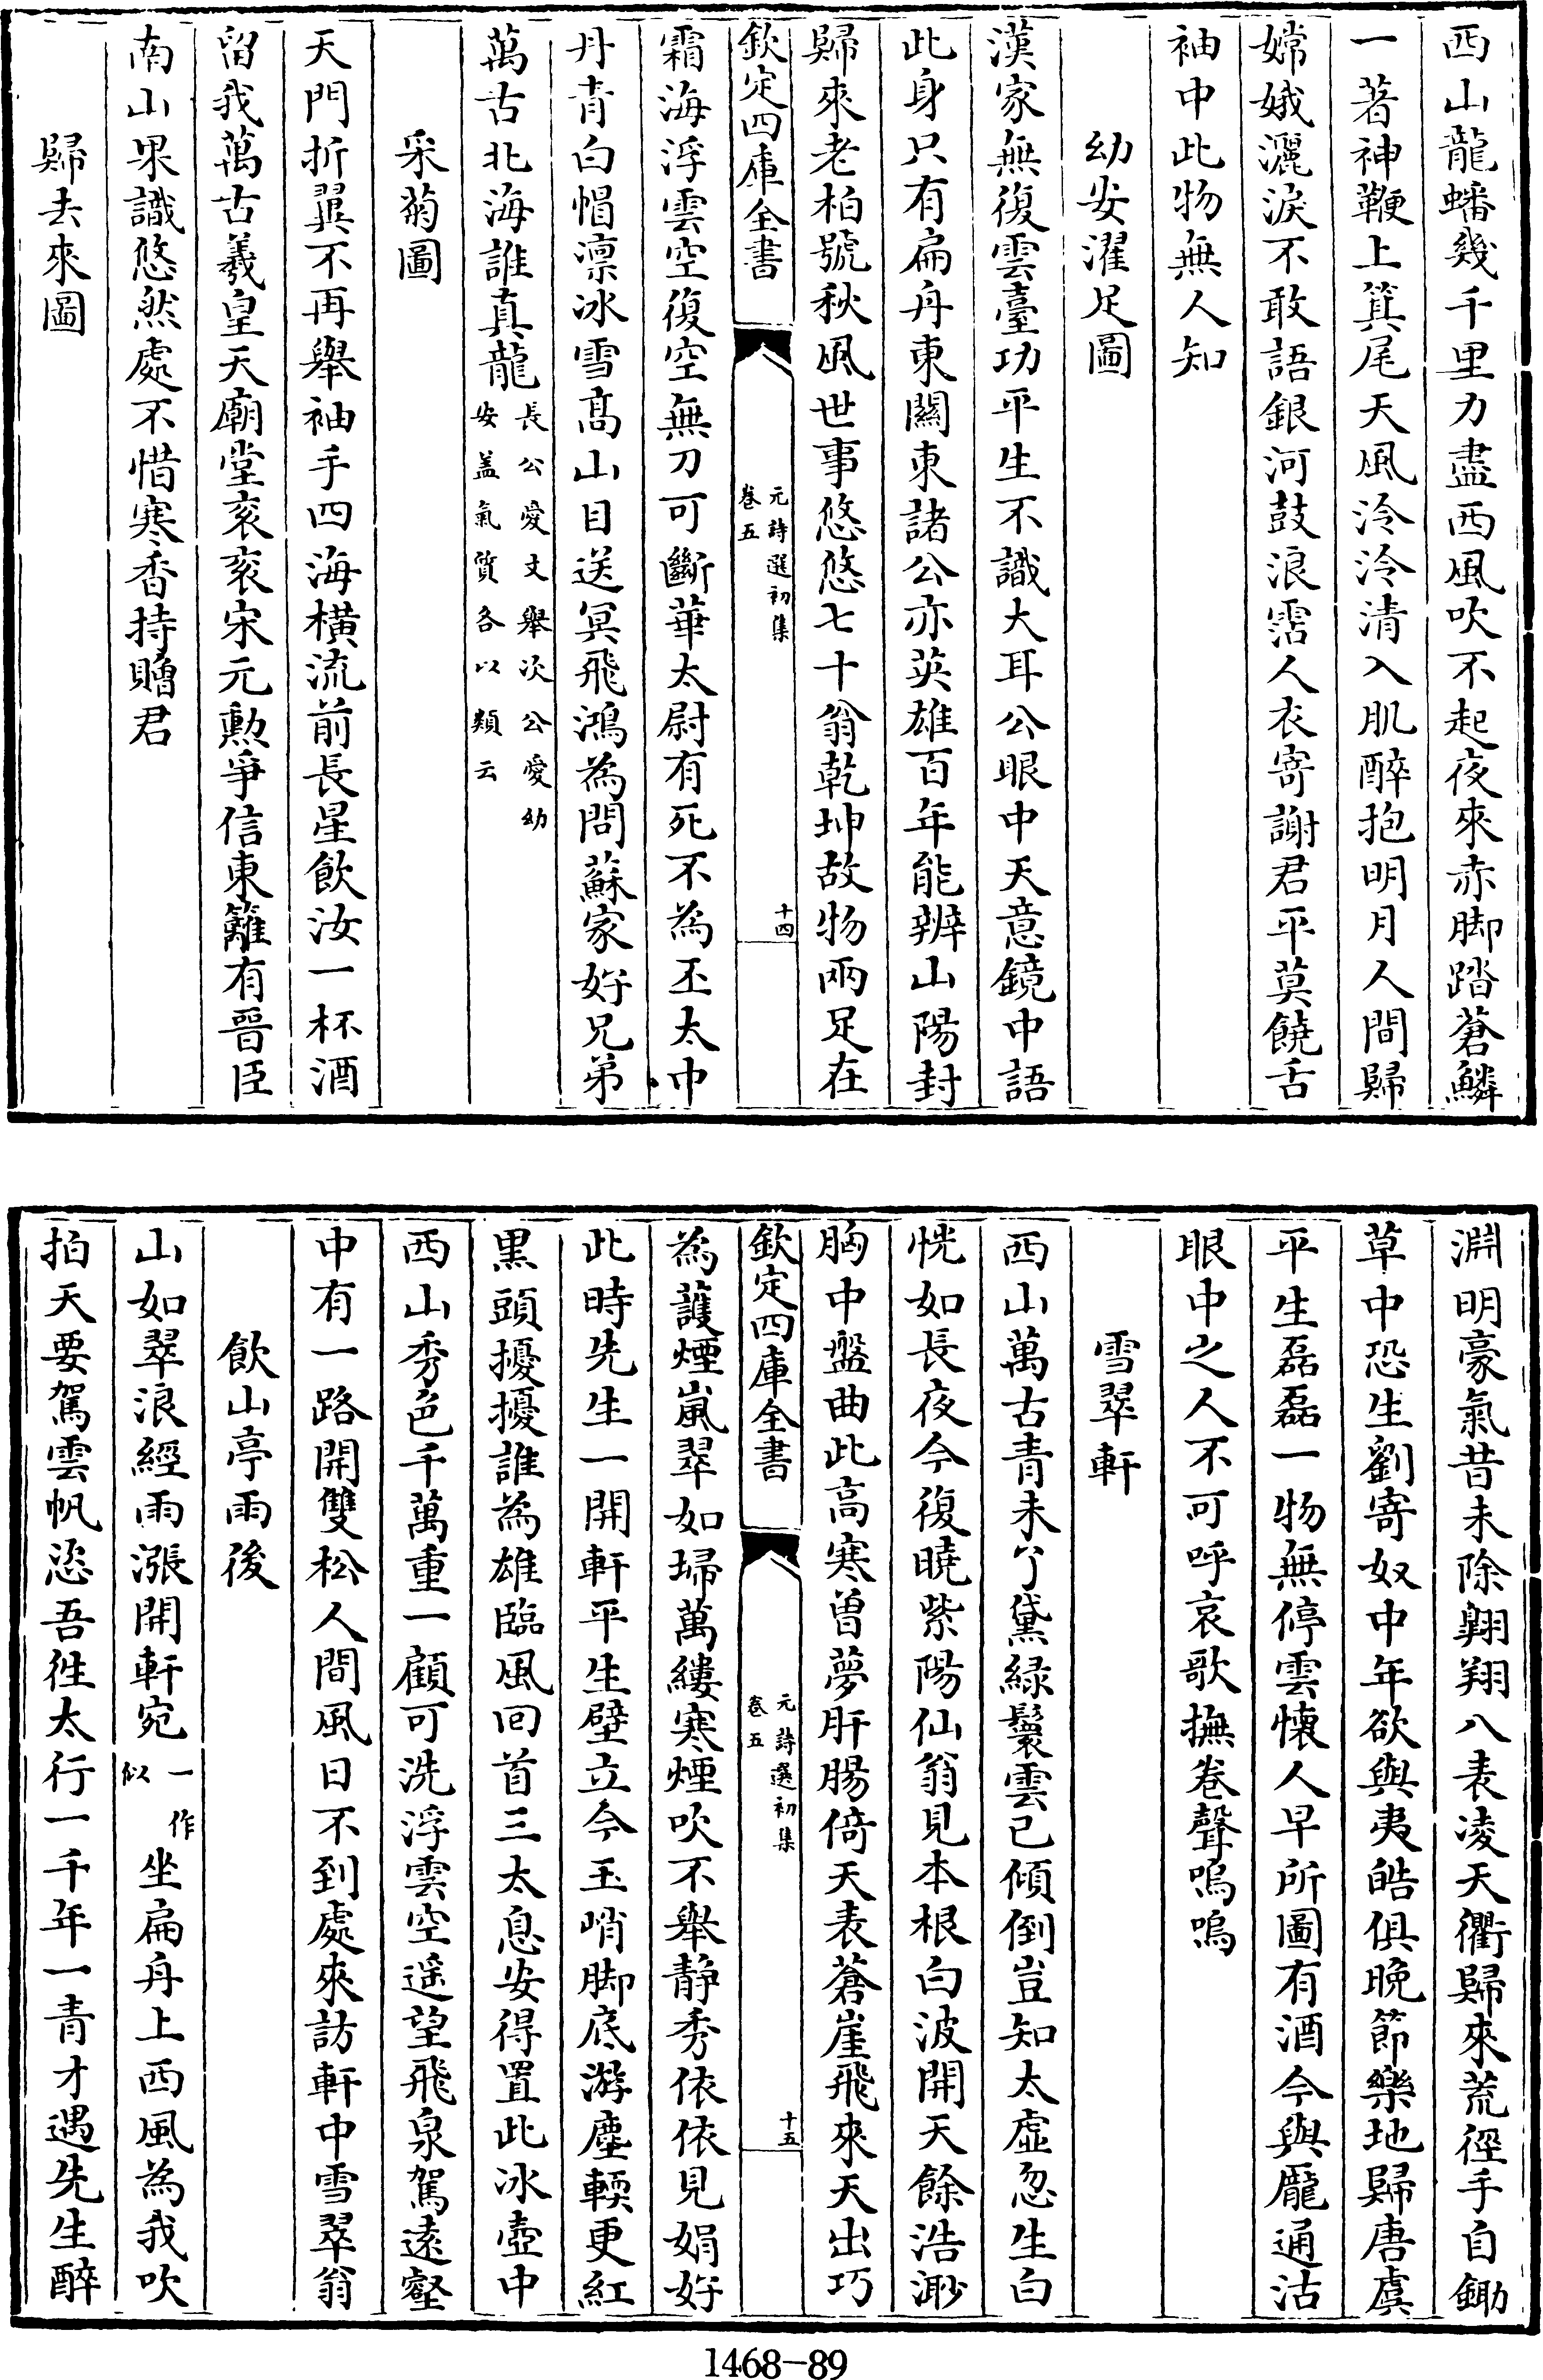 西山龍蟠幾千里力盡西風吹不起夜來赤脚踏蒼鱗
一著神鞭上箕尾天風泠泠清入肌醉抱明月人間歸
嫦娥灑淚不敢語銀河鼓浪霑人衣寄謝君平莫饒舌
袖中此物無人知
幼安濯足圖
漢家無復雲臺功平生不識大耳公眼中天意鏡中語
此身只有扁舟東關東諸公亦英雄百年能辨山陽封
歸來老柏號秋風世事悠悠七十翁乾坤故物兩足在
欽定四庫全書
元詩選初集
卷五
十四
霜海浮雲空復空無刀可斷華太尉有死不為丕太中
丹青白帽凛冰雪髙山目送冥飛鴻為問蘇家好兄弟
萬古北海誰真龍
長公愛文舉次公愛幼
安盖氣質各以類云
采菊圖
天門折翼不再舉袖手四海橫流前長星飲汝一杯酒
留我萬古羲皇天廟堂衮衮宋元勲爭信東籬有晉臣
南山果識悠然處不惜寒香持贈君
歸去來圖
淵明豪氣昔未除翺翔八表凌天衢歸來荒徑手自鋤
草中恐生劉寄奴中年欲與夷皓俱晚節樂地歸唐虞
平生磊磊一物無停雲懷人早所圖有酒今與龎通沽
眼中之人不可呼哀歌撫卷聲嗚嗚
雪翠軒
西山萬古青未了黛緑鬟雲已傾倒豈知太虛忽生白
恍如長夜今復曉紫陽仙翁見本根白波開天餘浩渺
胸中盤曲此高寒曽夢肝腸倚天表蒼崖飛來天出巧
欽定四庫全書
元詩選初集
卷五
十五
為護煙嵐翠如埽萬縷寒煙吹不舉静秀依依見娟好
此時先生一開軒平生壁立今玉峭脚底游塵輭更紅
黒頭擾擾誰為雄臨風囘首三太息安得置此冰壺中
西山秀色千萬重一顧可洗浮雲空遥望飛泉駕遠壑
中有一路開雙松人間風日不到處來訪軒中雪翠翁
飲山亭雨後
山如翠浪經雨漲開軒宛一作似坐扁舟上西風為我吹
拍天要駕雲帆恣吾徃太行一千年一青才遇先生醉
1468-89